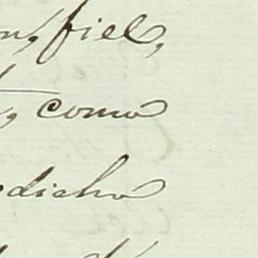 n, fiel,
, como
dicho